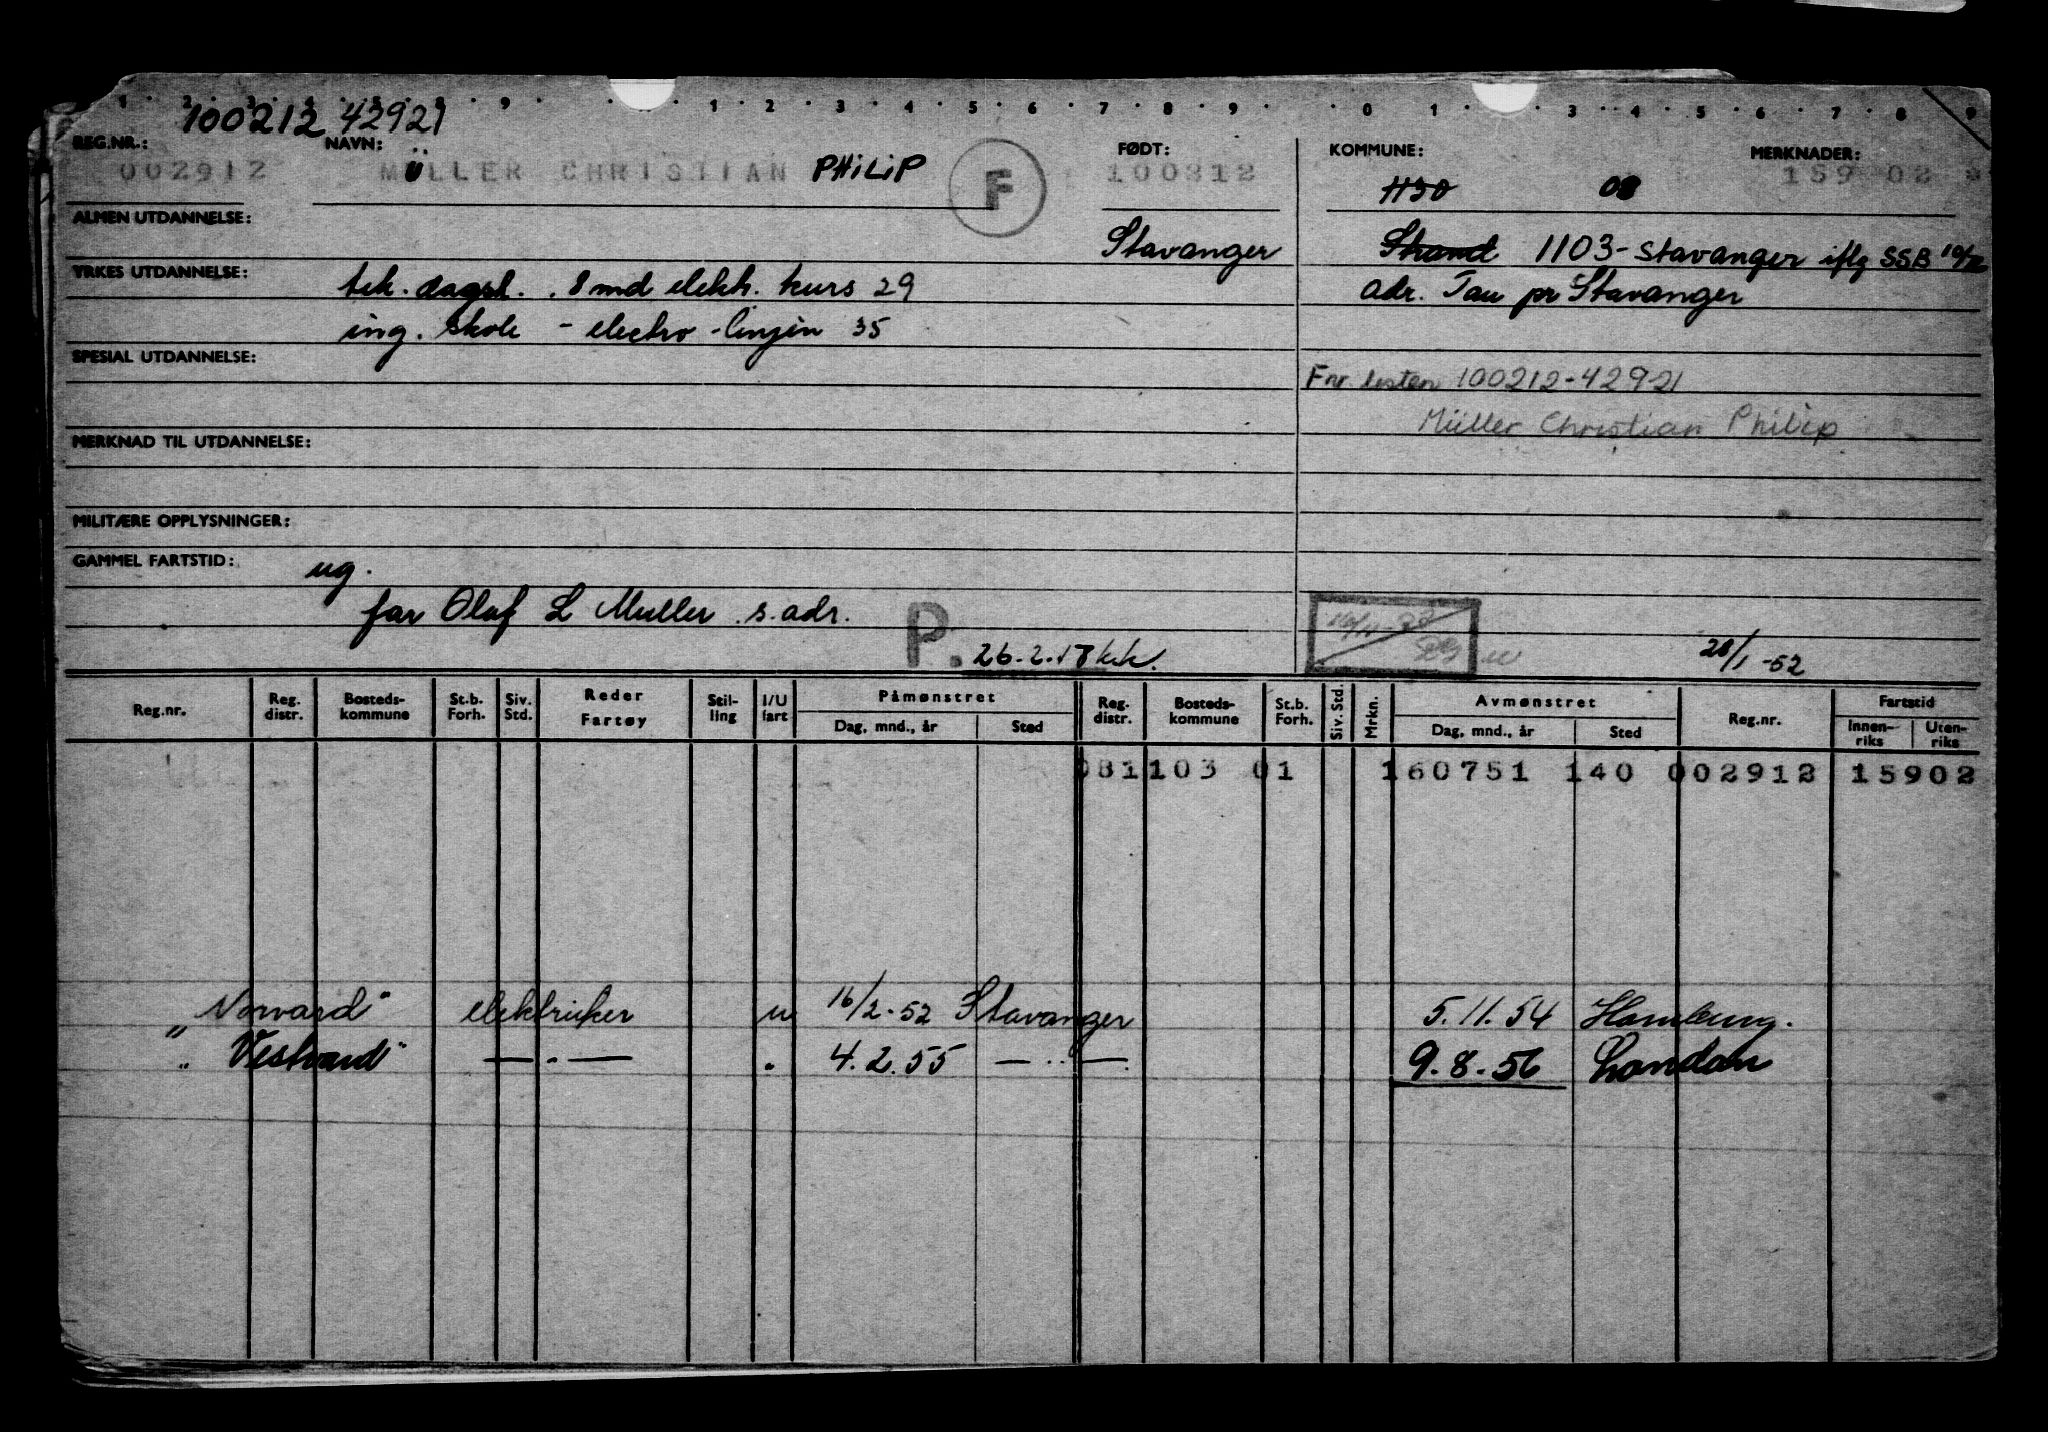 1 2 3 9 1 2 3 4 5 6 7 8 9 0 1 3 4 5 6 7 8 9
100212 42921
REG.NR.: NAVN: FØDT: KOMMUNE: MERKNADER:
002912 MÜLLER CHRISTIAN PHILIP F 100212 159 02
1130 08
ALMEN UTDANNELSE:
Stavanger Strand 1103 - Stavanger iflg SSB
YRKES UTDANNELSE: tek. dagsk. . 8 md elekk. kurs 29 adr. Tau pr Stavanger
ing. skole - electro - linjen 35
SPESIAL UTDANNELSE:
Fnr listen 100212-42921
Müller Christian Philip
MERKNAD TIL UTDANNELSE:
MILITÆRE OPPLYSNINGER:
GAMMEL FARTSTID: ug.
far Olaf L Muller s. adr. P.
28/1 -52
Reg.nr. Reg. distr. Bosteds-kommune St.b. Forh. Siv. Std. Reder Fartøy Stil-ling I/U fart Påmønstret Dag, mnd., år Sted Reg. distr. Bosteds-kommune St.b. Forh. Siv. Std. Mrkn. Avmønstret Dag, mnd., år Sted Reg.nr. Fartstid Innen-riks Uten-riks
081103 01 160751 140 002912 15902
"Norvard" elektriker u 16/2-52 Stavanger 5.11.54 Hamburg.
" Vestvard" — . — . 4.2.55 — .. — 9.8.56 London